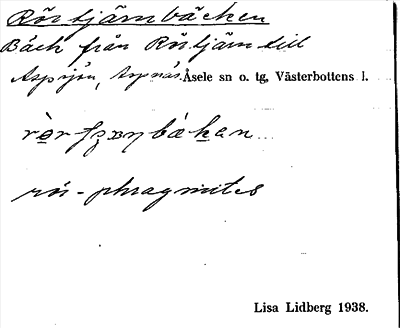 Rörtjärnbäcken
Bäck från Rörtjärn till
Aspsjön, Aspnäs. Åsele sn o. tg, Västerbottens l.
rör - phragmites
Lisa Lidberg 1938.